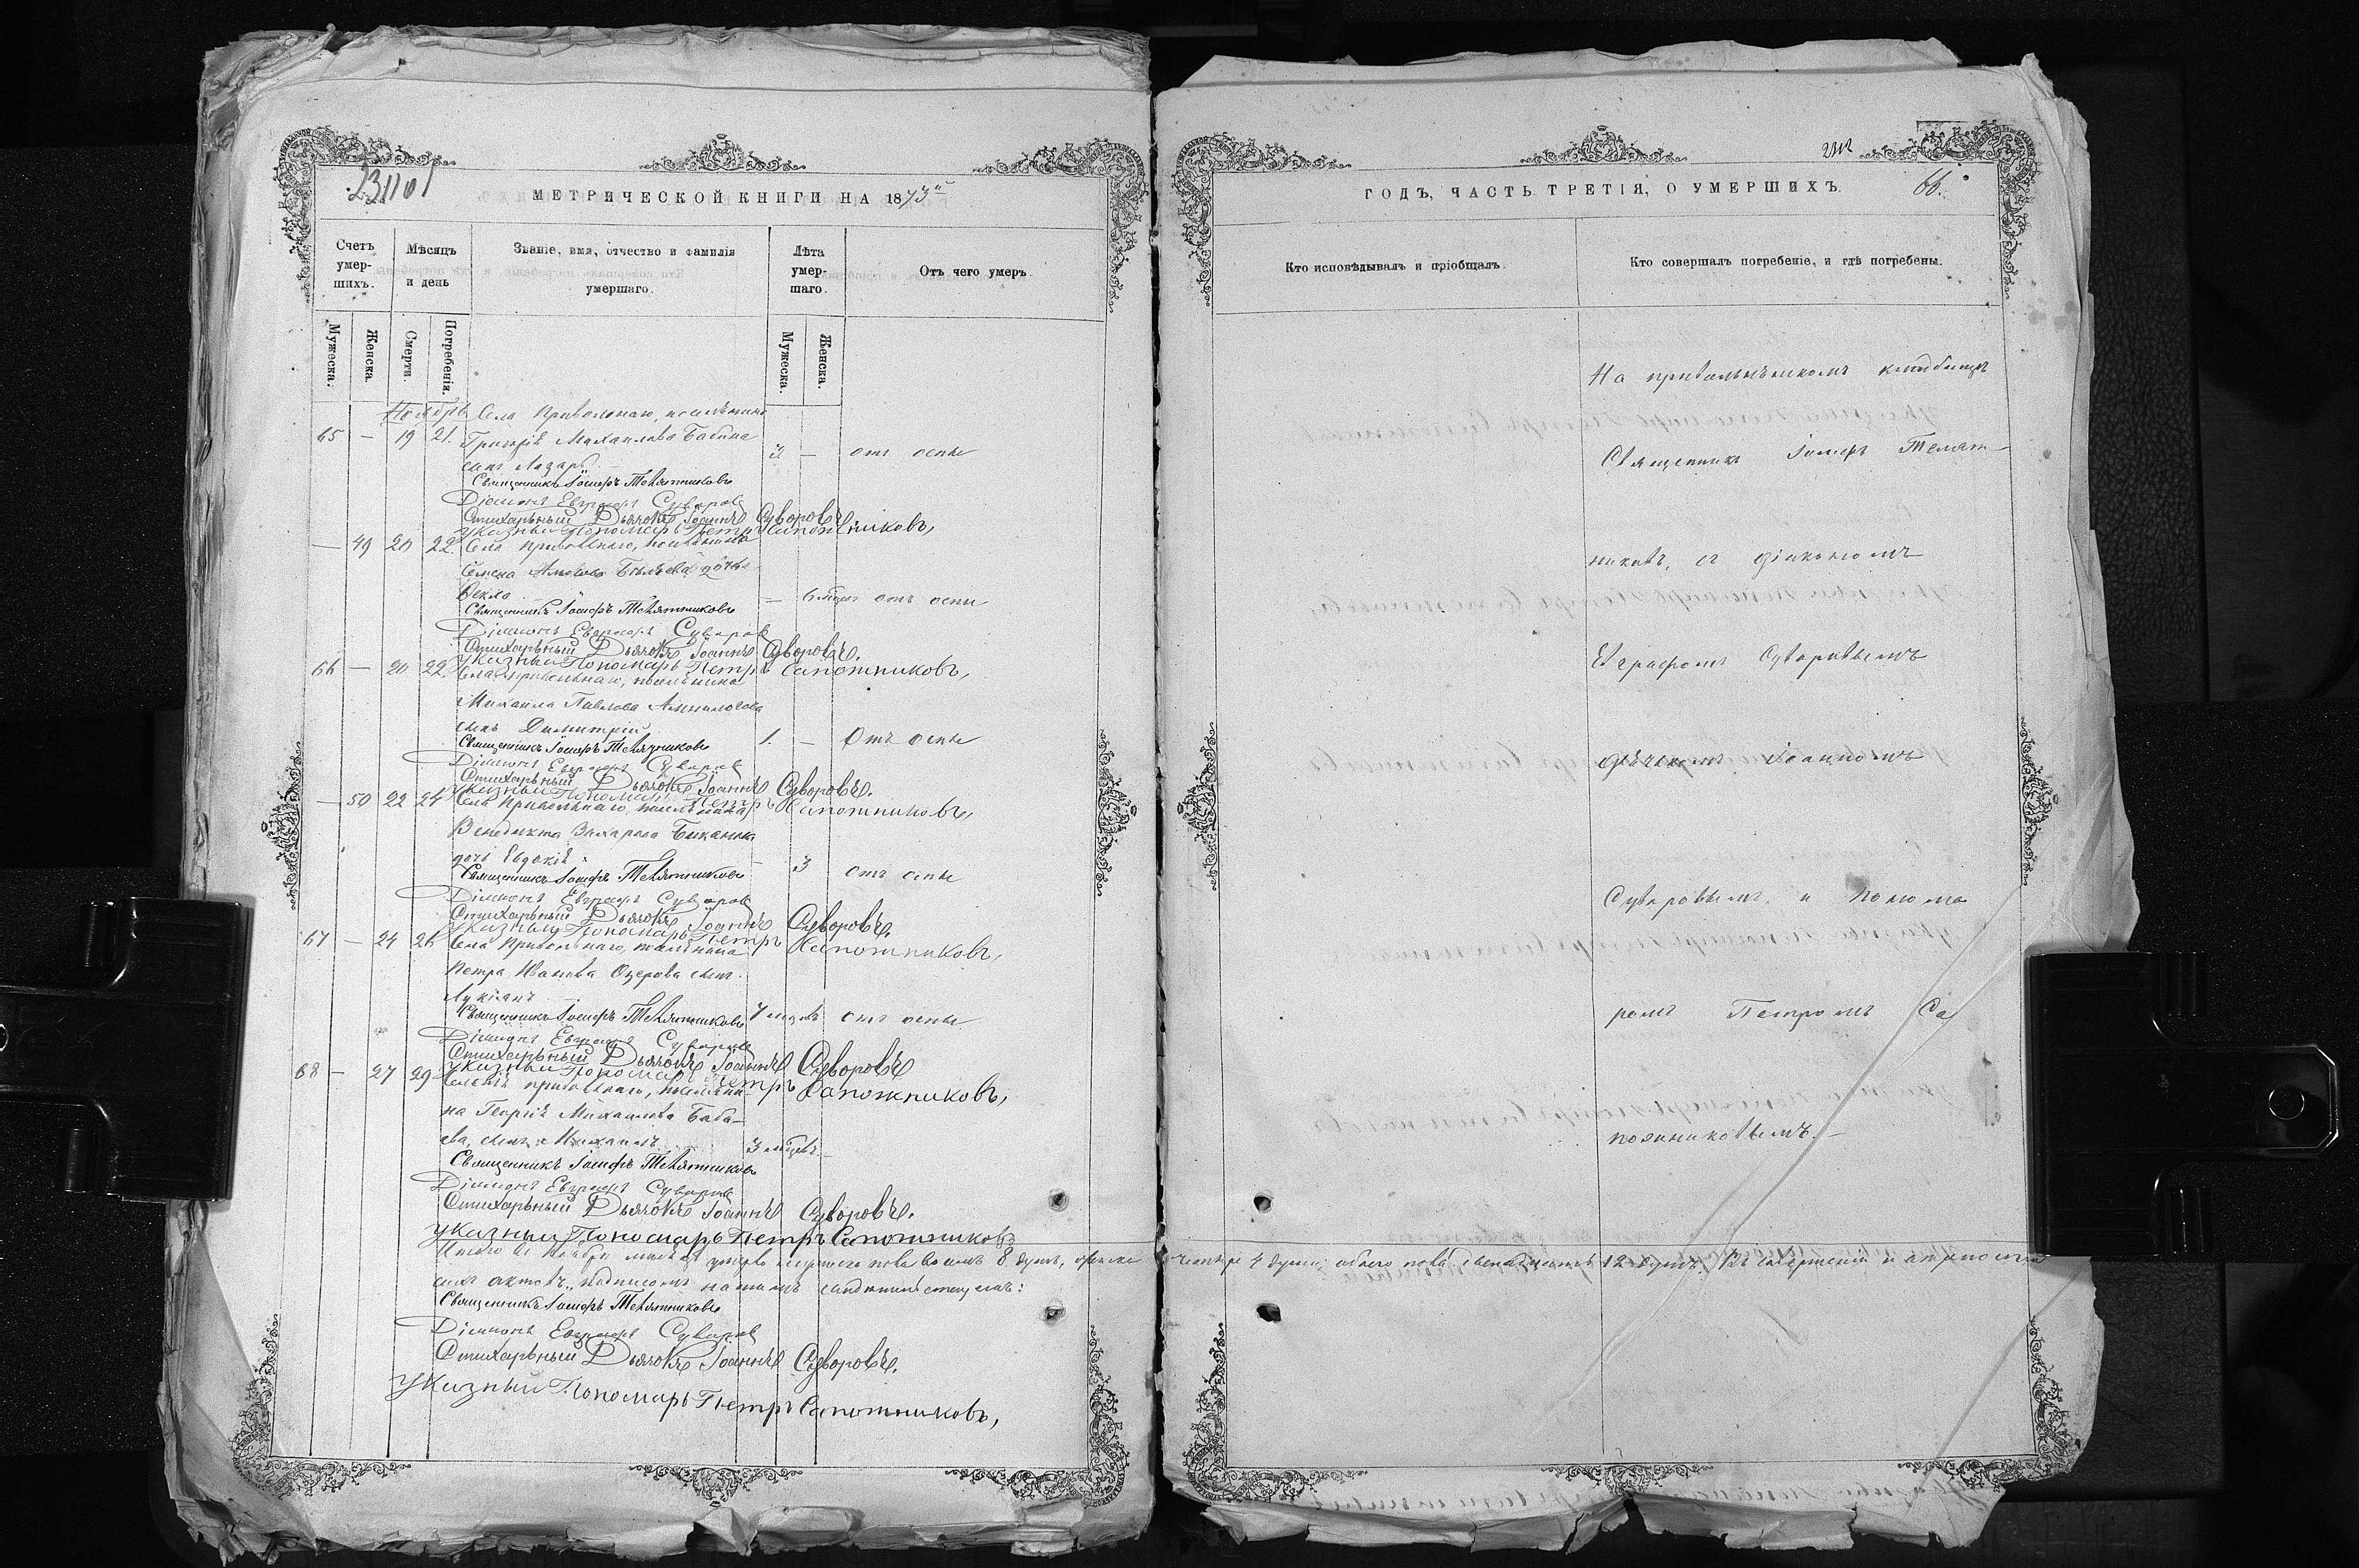 231101
МЕТРИЧЕСКОЙ КНИГИ НА 1873й
Счетъ умер-шихъ.
Мѣсяцъ и день
Званіе, имя, отчество и фамилія умершаго.
Лѣта умер-шаго.
Отъ чего умеръ.
Мужеска.
Женска.
Смерти.
Погребенія.
Мужеска.
Женска.
Ноябрь Села Привольнаго, поселянина
65 — 19 21. Григорія Михаилова Бабина
сынъ Лазарь 3 — отъ оспы
Священникъ Іосифъ Телятниковъ
Діаконъ Евграфъ Суворовъ
Стихарный Дьячокъ Іоаннъ Суворовъ.
Указный Пономарь Петръ Сапожниковъ,
— 49 20 22. Села Привольнаго, поселянина
Семена дочь
Ѳекла — 6 мѣсяц отъ оспы
Священникъ Іосифъ Телятниковъ
Діаконъ Евграфъ Суворовъ
Стихарный Дьячокъ Іоаннъ Суворовъ.
Указный Пономарь Петръ Сапожниковъ,
66 — 20 22. Села Привольнаго, поселянина
Михаила Павлова
сынъ Димитрій 1. — Отъ оспы
Священникъ Іосифъ Телятниковъ
Діаконъ Евграфъ Суворовъ
Стихарный Дьячокъ Іоаннъ Суворовъ.
Указный Пономарь Петръ Сапожниковъ,
— 50 22 24 Села Привольнаго, поселянина
Венедикта Захарова
дочь Евдокія — 3 отъ оспы
Священникъ Іосифъ Телятниковъ
Діаконъ Евграфъ Суворовъ
Стихарный Дьячокъ Іоаннъ Суворовъ.
Указный Пономарь Петръ Сапожниковъ,
67 — 24 26 Села Привольнаго, поселянина
Петра Иванова Озерова сынъ
Лукіанъ 7 мѣсяцъ отъ оспы
Священникъ Іосифъ Телятниковъ
Діаконъ Евграфъ Суворовъ
Стихарный Дьячокъ Іоаннъ Суворовъ
Указный Пономарь Петръ Сапожниковъ,
68 — 27 29 Привольнаго, поселяни-
на Георгія Михаилова Баба-
ева, сынъ Михаилъ 3 мѣсяц —
Священникъ Іосифъ Телятниковъ
Діаконъ Евграфъ Суворовъ
Стихарный Дьячокъ Іоаннъ Суворовъ.
Указный Пономарь Петръ Сапожниковъ
Итого въ Ноябрѣ мѣсяцѣ умерло мужскаго пола восемь 8 душъ, женска
сихъ актовъ подписомъ нашимъ свидѣтельствуемъ:
Священникъ Іосифъ Телятниковъ
Діаконъ Евграфъ Суворовъ
Стихарный Дьячокъ Іоаннъ Суворовъ.
Указный Пономарь Петръ Сапожниковъ,
ГОДЪ, ЧАСТЬ ТРЕТІЯ, О УМЕРШИХЪ.
66.
Кто исповѣдывалъ и пріобщалъ.
Кто совершалъ погребеніе, и гдѣ погребены.
На привольненскомъ кладбищѣ
Священникъ Іосифъ Телят-
никовъ, съ діакономъ
Евграфомъ Суворовымъ
дьячкомъ Іоанномъ
Суворовымъ, и понома
ремъ Петромъ Са
пожниковымъ. —
четыре 4 души; обоего пола двенадцать 12 душъ.